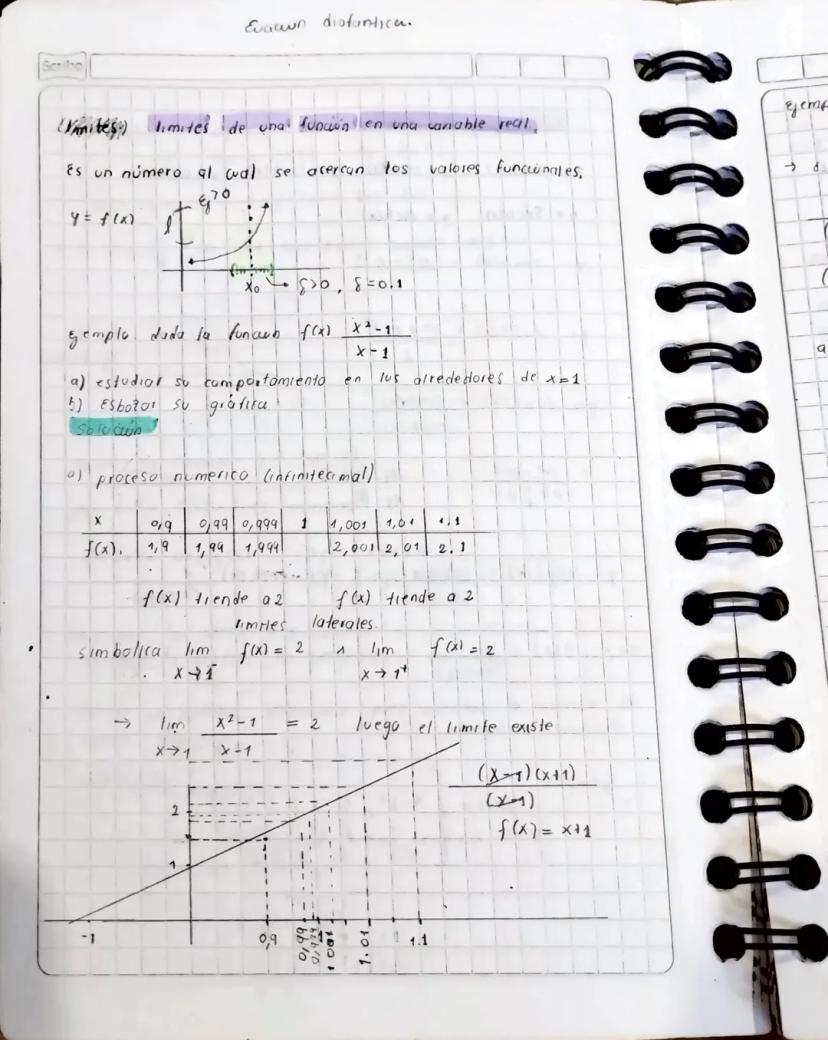 Ecuacion diofantica.
Scribe
(limites) limites de una función en una variable real.
Es un número al cual se acercan los valores funcionales.
y = f(x)
l
ε>0
x₀
δ>0, δ=0.1
Ejemplo dada la funcion f(x) x²-1
x-1
a) estudiar su comportamiento en los alrededores de x=1
b) Esbozar su gráfica
Solución
a) proceso numerico (infinitecimal)
x 0,9 0,99 0,999 1 1,001 1,01 1.1
f(x). 1,9 1,99 1,999 2,001 2,01 2.1
f(x) tiende a 2 f(x) tiende a 2
limites laterales
simbolica lim f(x) = 2 ∧ lim f(x) = 2
x→1⁻ x→1⁺
→ lim x²-1 = 2 luego el limite existe
x→1 x-1
(x-1)(x+1)
(x-1)
f(x) = x+1
2
1
-1 0,9 0,99 0,999 1 1.001 1.01 1.1
Ejemp
→
a